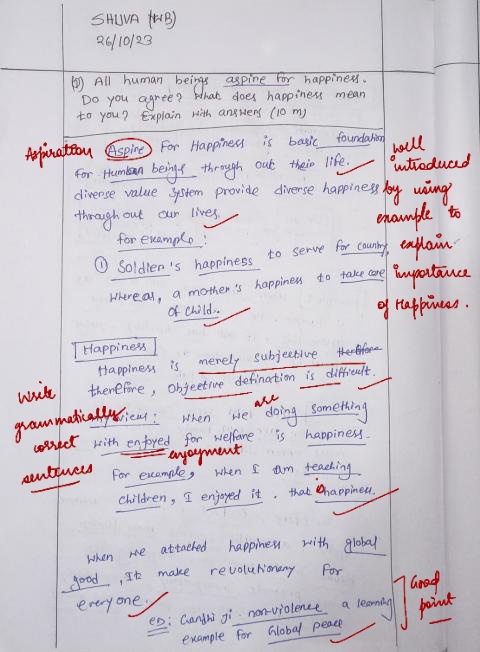 SHUVA (WB)
26/10/23
(Q) All human beings aspine for happiness.
Do you agree? What does happiness mean
to you? Explain with answers (10 m)
Aspiration
Aspine For Happiness is basic foundation
For Human beings through out their life.
diverse value system provide diverse happiness
through out our lives.
well
introduced
by using
example to
explain
importance
of Happiness.
for example:
① Soldier's happiness to serve for country,
whereas, a mother's happiness to take care
of child.
Happiness
Happiness is merely subjective therefore
therefore, Objective defination is difficult.
Write
grammatically
correct
sentences
My view: when we are doing something
with enjoyed for welfare is happiness.
enjoyment
For example, when I am teaching
children, I enjoyed it. that is happiness.
when we attached happiness with global
good, It make revolutionary for
everyone.
eg: Gandhi ji non-violence a learning
example for Global peace
Good
point